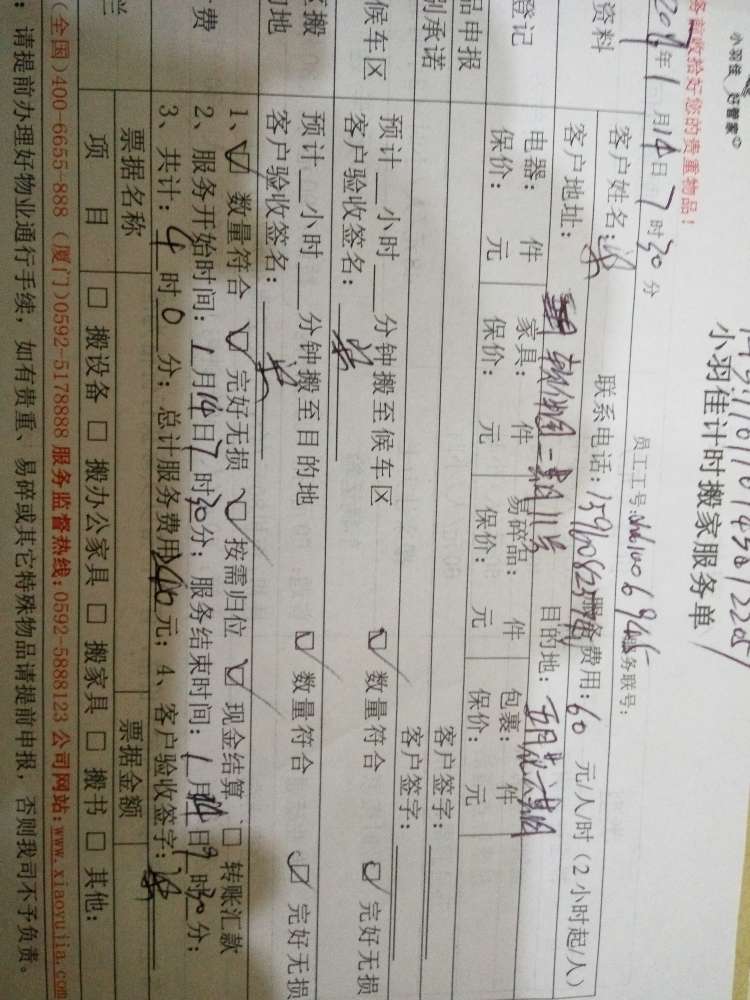 小羽佳 好管家
小羽佳计时搬家服务单
务前收拾好您的贵重物品！
员工工号: 务联号:
年1月14日7时30分
资料
客户姓名: 联系电话: 服务费用: 60 元/人/时(2小时起/人)
客户地址: 目的地:
登记
电器: 件 家具: 件 易碎品: 件 包裹: 件
保价: 元 保价: 元 保价: 元 保价: 元
品申报 客户签字:
别承诺 客户签字:
候车区
预计__小时__分钟搬至候车区 ☑ 数量符合 ☑ 完好无损
客户验收签名:
区搬
的地
预计__小时__分钟搬至目的地 ☑ 数量符合 ☑ 完好无损
客户验收签名:
费
1、☑ 数量符合 ☑ 完好无损 ☑ 按需归位 ☑ 现金结算 □ 转账汇款
2、服务开始时间: 1月14日7时30分; 服务结束时间: 1月14日9时30分;
3、共计: 4时0分; 总计服务费用240元; 4、客户验收签字:
票据名称 票据金额
项 目 □ 搬设备 □ 搬办公家具 □ 搬家具 □ 搬书 □ 其他:
(全国)400-6655-888 (厦门)0592-5178888 服务监督热线:0592-5888123 公司网站:www.xiaoyujia.com
: 请提前办理好物业通行手续，如有贵重、易碎或其它特殊物品请提前申报，否则我司不予负责。